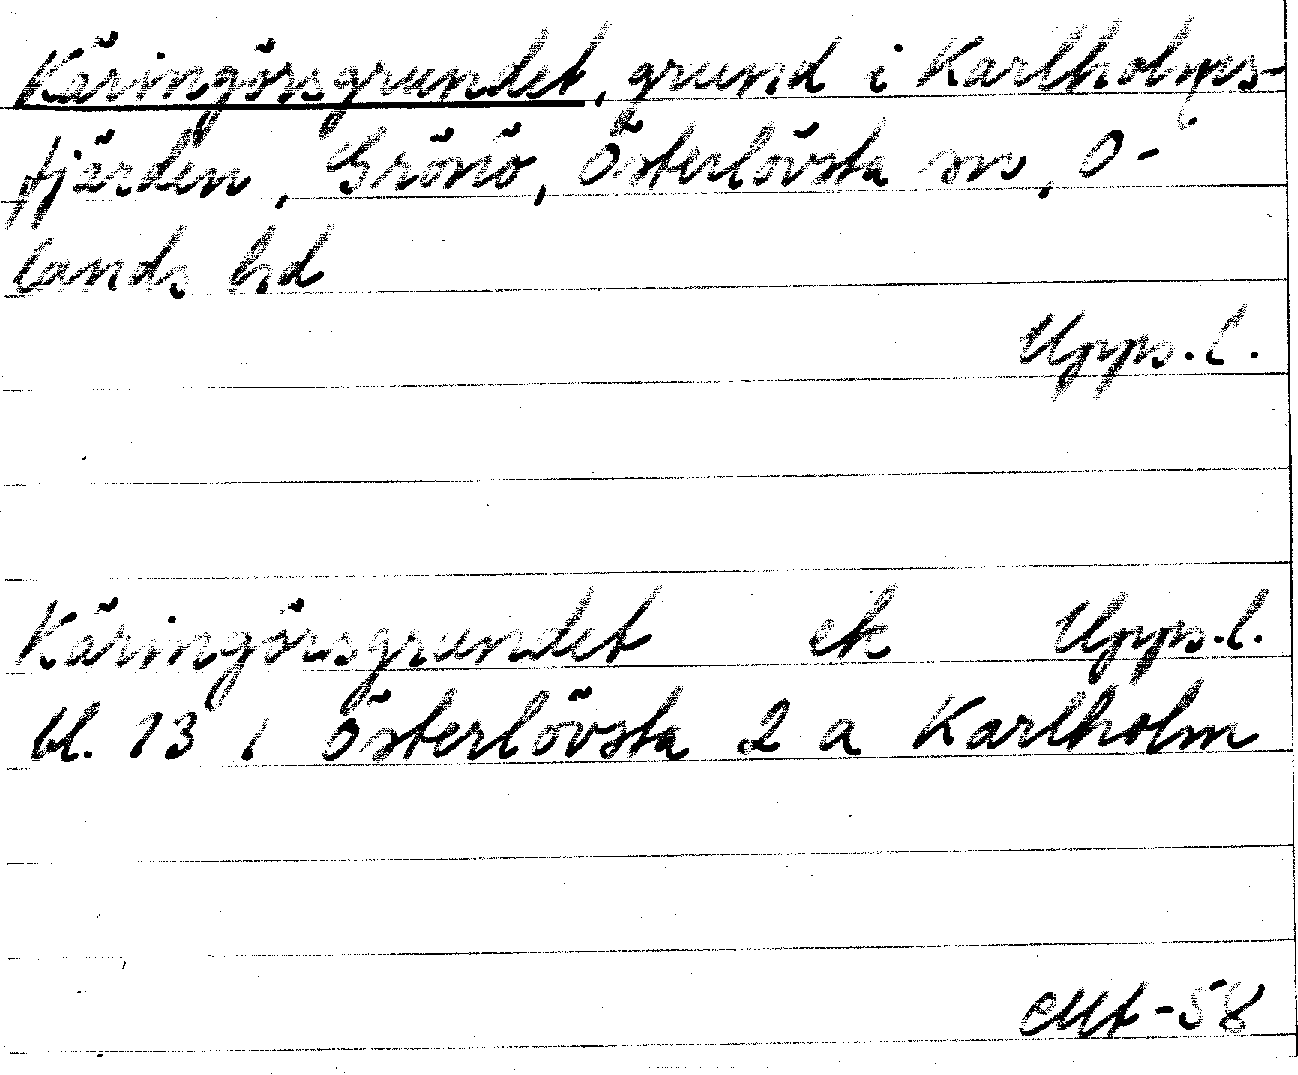 Käringörsgrundet, grund i Karlholms-
fjärden, Grönö, Österlövsta sn, O-
lands hd
Upps. l.
Käringörsgrundet ek Upps. l.
bl. 13 i Österlövsta 2 a Karlholm
-58